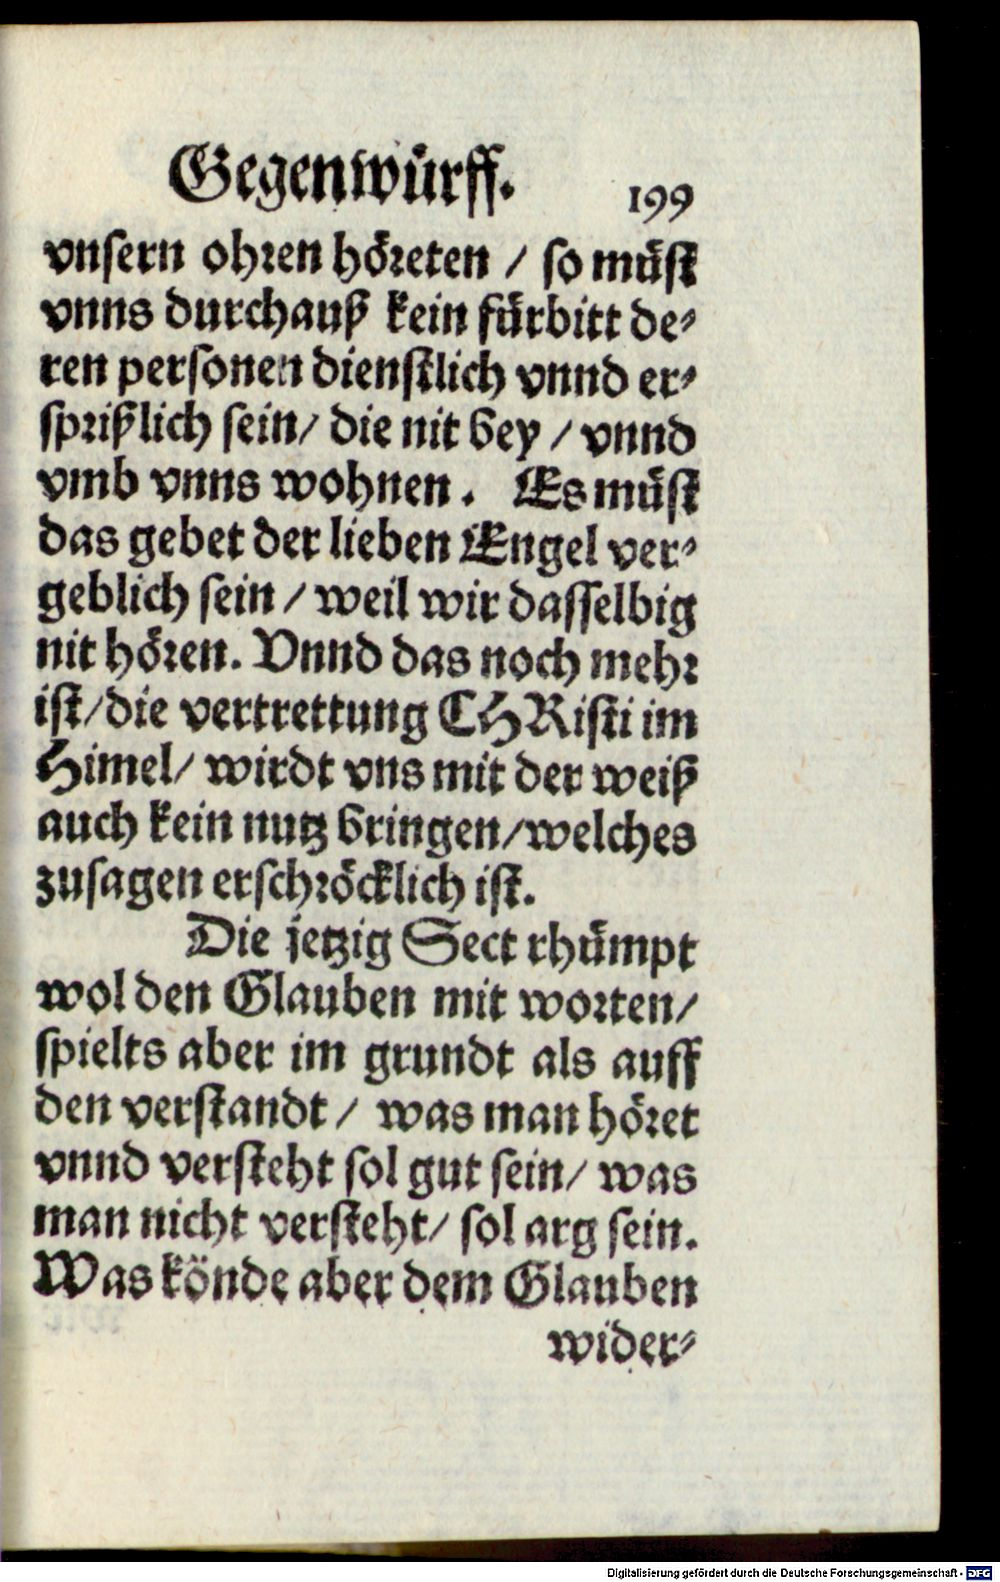 Gegenwürff. 199
vnsern ohren höreten / so müst
vnns durchauß kein fürbitt de-
ren personen dienstlich vnnd er-
sprißlich sein / die nit bey / vnnd
vmb vnns wohnen. Es müst
das gebet der lieben Engel ver-
geblich sein / weil wir dasselbig
nit hören. Vnnd das noch mehr
ist / die vertrettung CHRisti im
Himel / wirdt vns mit der weiß
auch kein nutz bringen / welches
zusagen erschröcklich ist.
Die jetzig Sect rhümpt
wol den Glauben mit worten /
spielts aber im grundt als auff
den verstandt / was man höret
vnnd versteht sol gut sein / was
man nicht versteht / sol arg sein.
Was könde aber dem Glauben
wider-
Digitalisierung gefördert durch die Deutsche Forschungsgemeinschaft - DFG